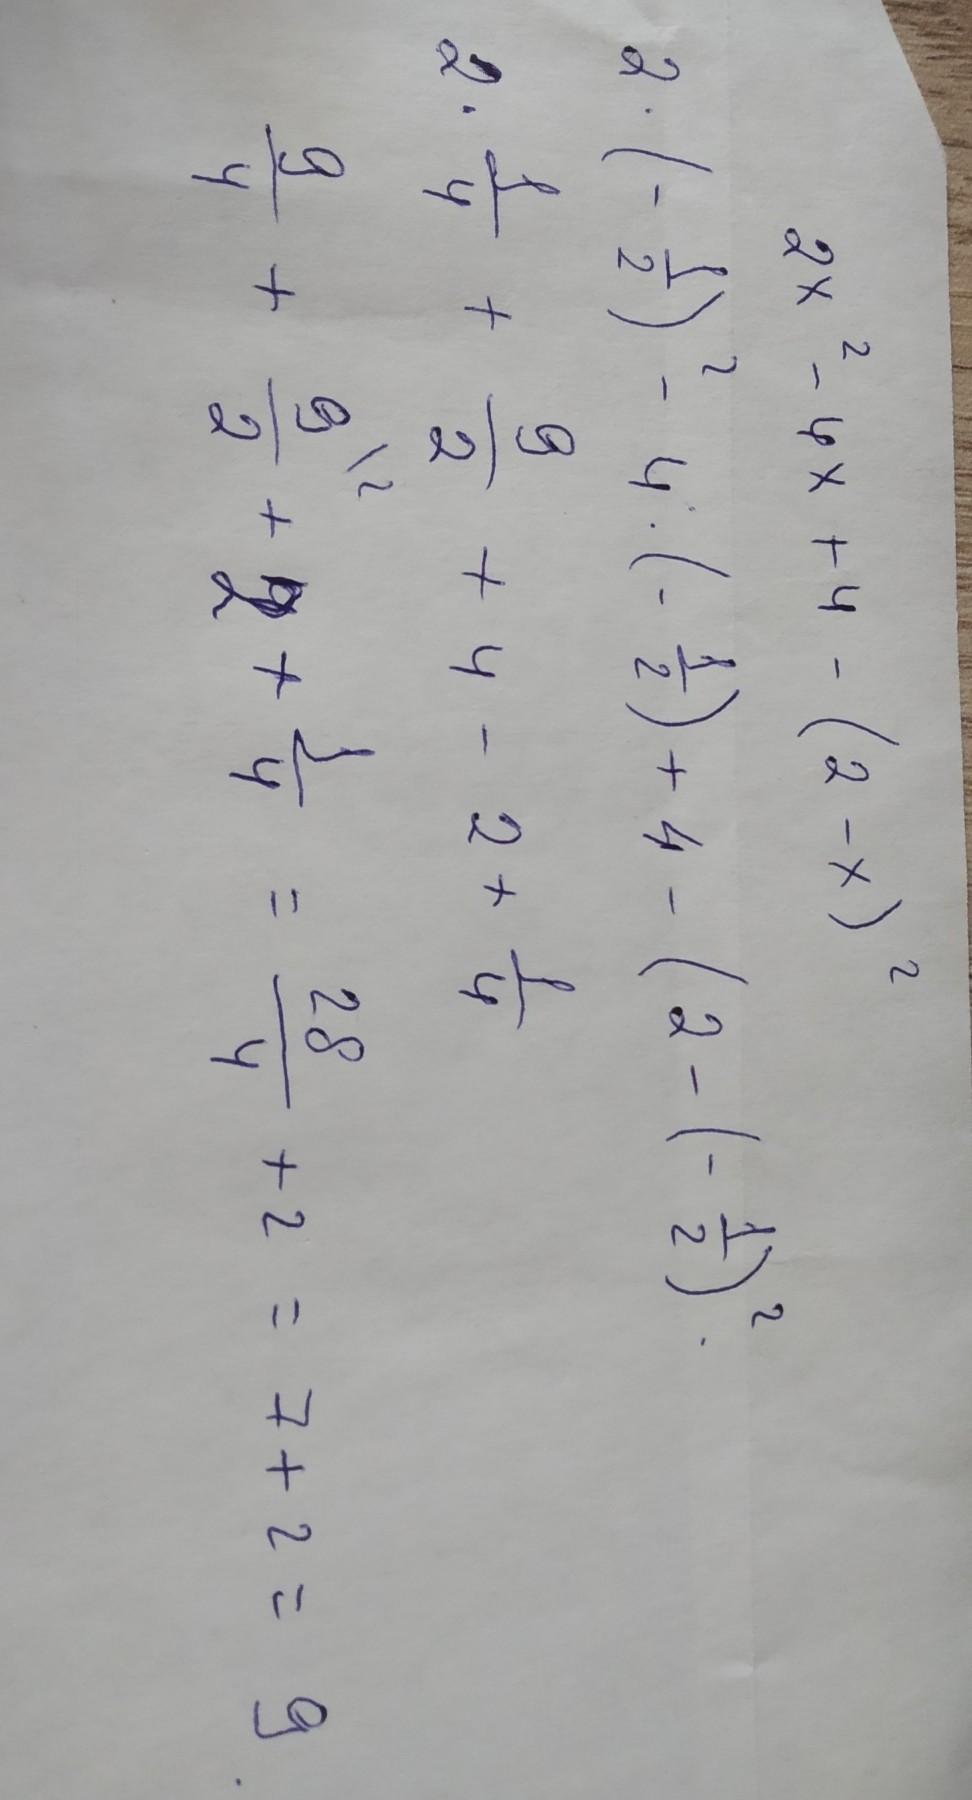 2x² - 4x + 4 - (2 - x)²
2 · (- 1/2)² - 4 · (- 1/2) + 4 - (2 - (- 1/2)² .
2 · 1/4 + 9/2 + 4 - 2 + 1/4
9/4 + 9\2/2 + 2 + 1/4 = 28/4 + 2 = 7 + 2 = 9 .